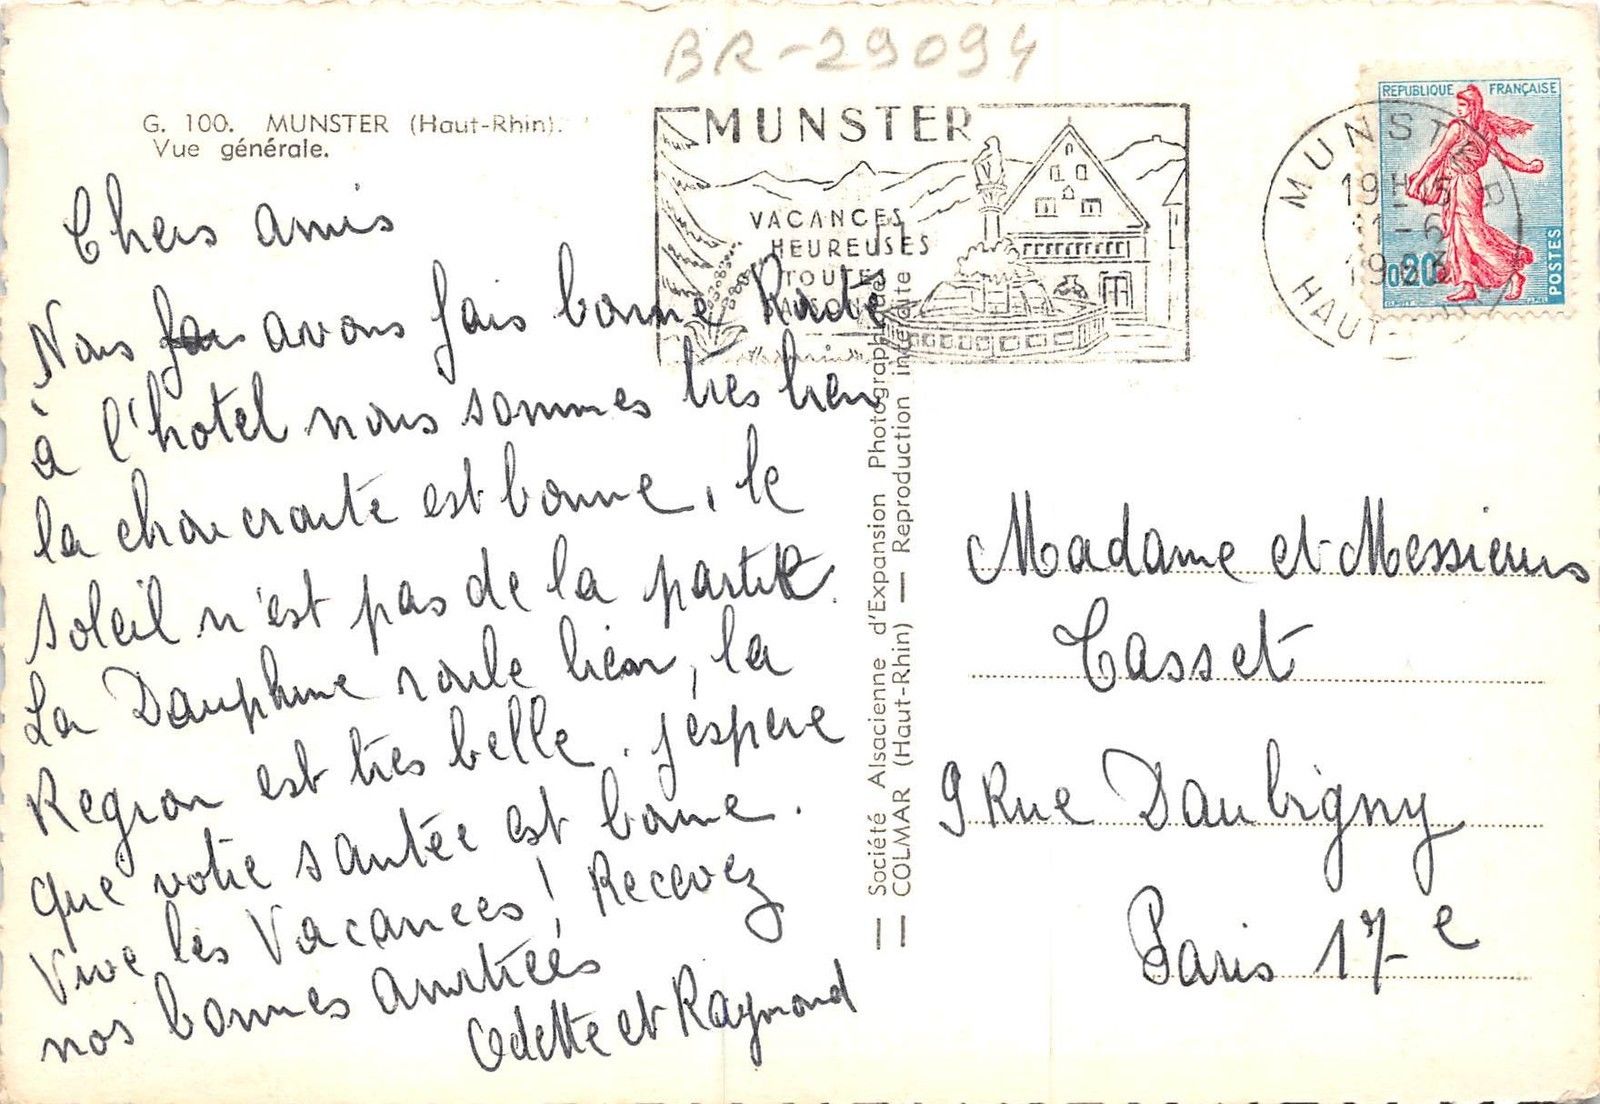 BR-29094
G. 100. MUNSTER (Haut-Rhin).
Vue générale.
MUNSTER
VACANCES
HEUREUSES
TOUTES
SAISONS
MUNSTER
19H15
11-6
1963
HAUT-RHIN
REPUBLIQUE FRANÇAISE
0,20
POSTES
Chers amis
Nous avons fais bonne Route
à l'hotel nous sommes très bien
la choucroute est bonne, le
soleil n'est pas de la partie.
La Dauphine roule bien, la
Region est très belle. j'espère
que votre santée est bonne.
Vive les Vacances! Recevez
nos bonnes amitiées
Odette et Raymond
Société Alsacienne d'Expansion Photographique
COLMAR (Haut-Rhin) — Reproduction interdite
Madame et Messieurs
Casset
9 Rue Daubigny
Paris 17e